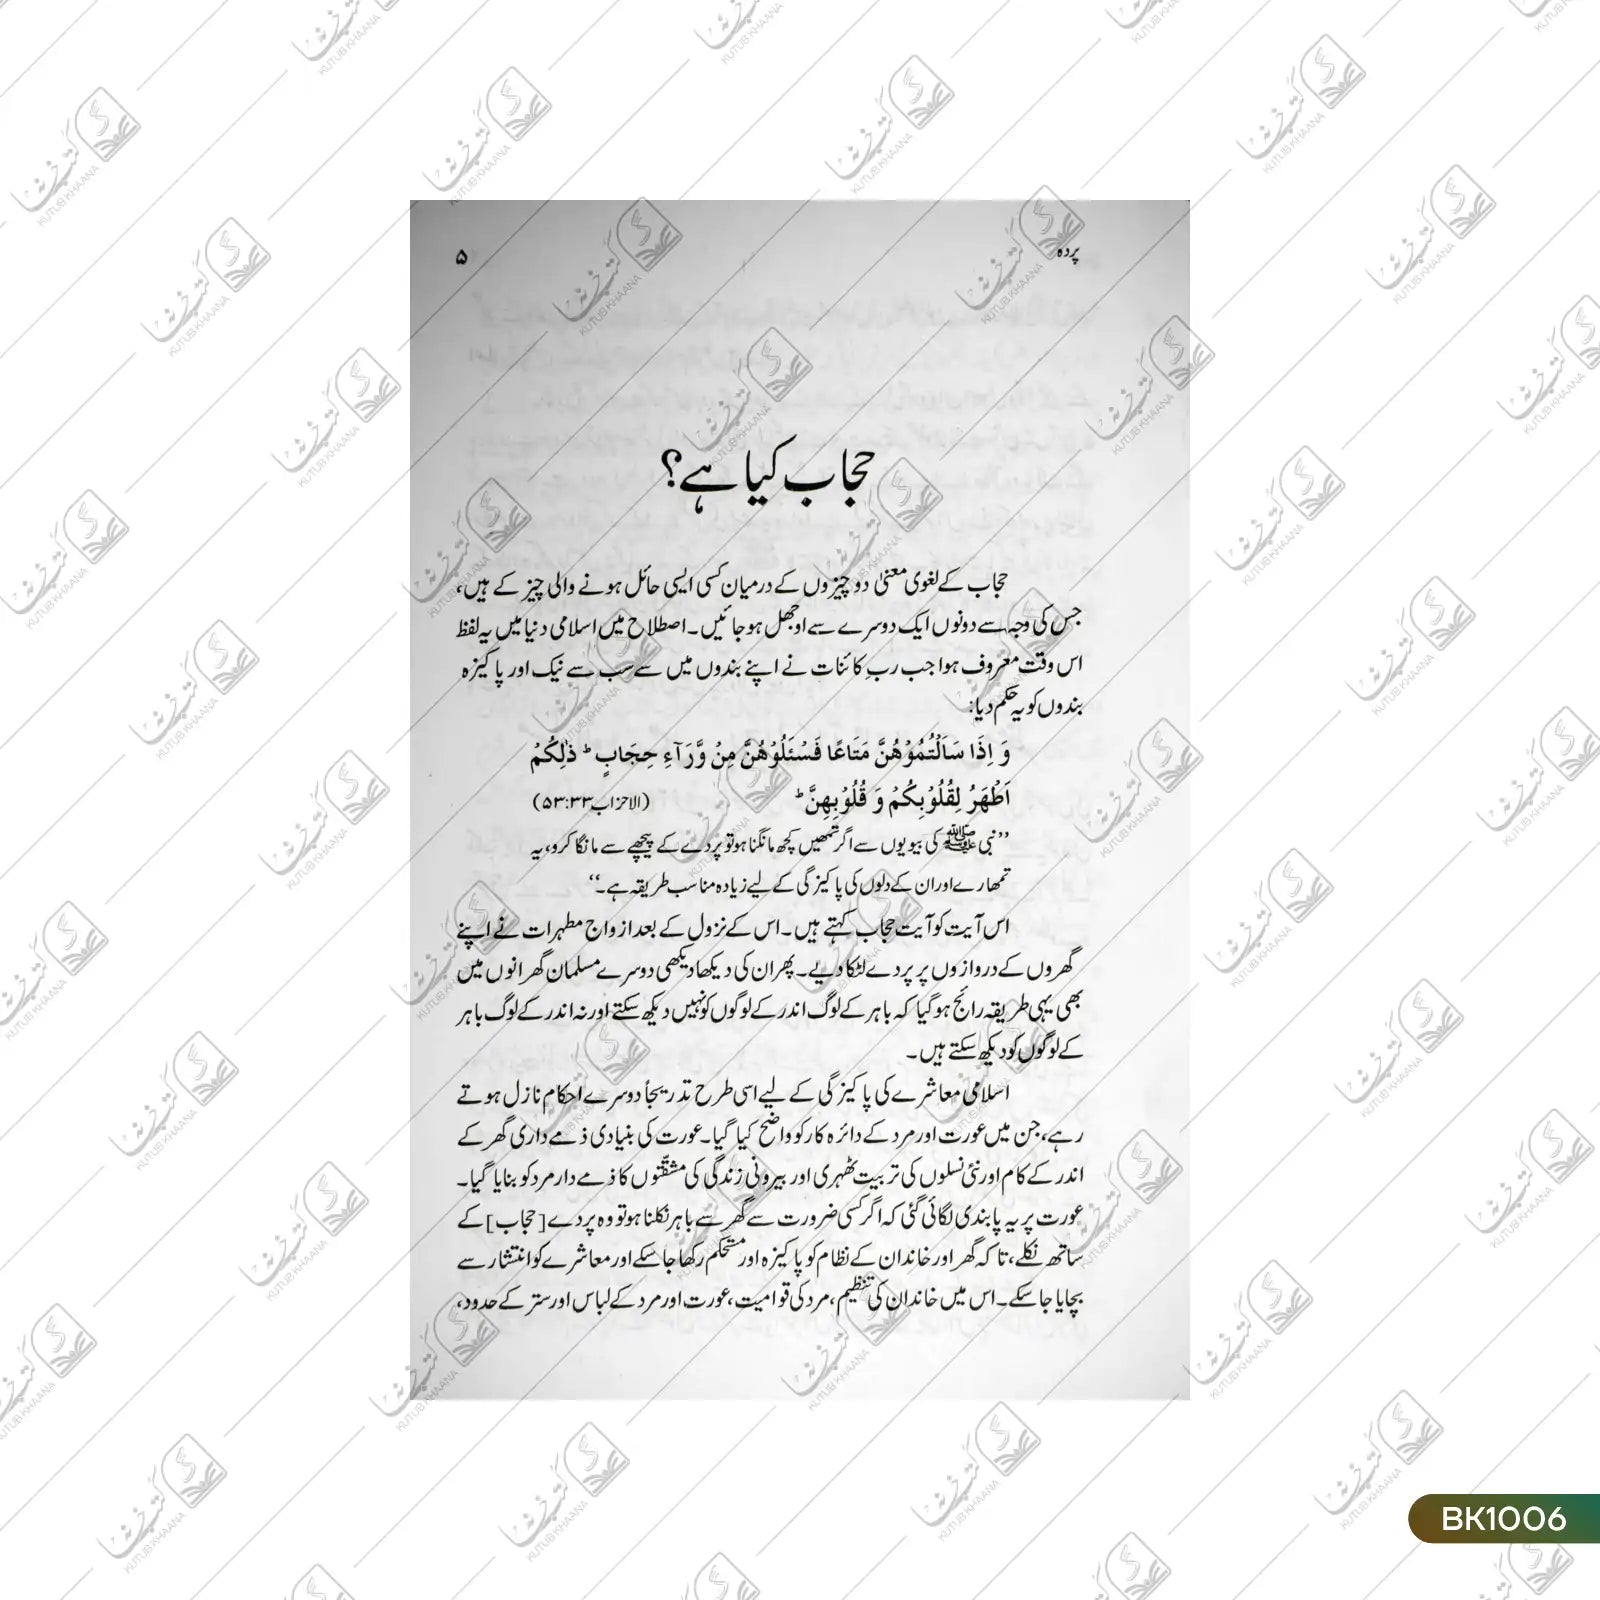 پردہ
۵
حجاب کیا ہے؟
حجاب کے لغوی معنیٰ دو چیزوں کے درمیان کسی ایسی حائل ہونے والی چیز کے ہیں،
جس کی وجہ سے دونوں ایک دوسرے سے اوجھل ہو جائیں۔ اصطلاح میں اسلامی دنیا میں یہ لفظ
اس وقت معروف ہوا جب ربِ کائنات نے اپنے بندوں میں سے سب سے نیک اور پاکیزہ
بندوں کو یہ حکم دیا:
وَ اِذَا سَاَلْتُمُوْهُنَّ مَتَاعًا فَسْئَلُوْهُنَّ مِنْ وَّرَآءِ حِجَابٍ ؕ ذٰلِكُمْ
اَطْهَرُ لِقُلُوْبِكُمْ وَ قُلُوْبِهِنَّ ؕ (الاحزاب ۵۳:۳۳)
’’نبی ﷺ کی بیویوں سے اگر تمھیں کچھ مانگنا ہو تو پردے کے پیچھے سے مانگا کرو، یہ
تمھارے اور ان کے دلوں کی پاکیزگی کے لیے زیادہ مناسب طریقہ ہے۔‘‘
اس آیت کو آیت حجاب کہتے ہیں۔ اس کے نزول کے بعد ازواج مطہرات نے اپنے
گھروں کے دروازوں پر پردے لٹکا دیے۔ پھر ان کی دیکھا دیکھی دوسرے مسلمان گھرانوں میں
بھی یہی طریقہ رائج ہو گیا کہ باہر کے لوگ اندر کے لوگوں کو نہیں دیکھ سکتے اور نہ اندر کے لوگ باہر
کے لوگوں کو دیکھ سکتے ہیں۔
اسلامی معاشرے کی پاکیزگی کے لیے اسی طرح تدریجاً دوسرے احکام نازل ہوتے
رہے، جن میں عورت اور مرد کے دائرہ کار کو واضح کیا گیا۔ عورت کی بنیادی ذمے داری گھر کے
اندر کے کام اور نئی نسلوں کی تربیت ٹھہری اور بیرونی زندگی کی مشقّتوں کا ذمے دار مرد کو بنایا گیا۔
عورت پر یہ پابندی لگائی گئی کہ اگر کسی ضرورت سے گھر سے باہر نکلنا ہو تو وہ پردے [حجاب] کے
ساتھ نکلے، تاکہ گھر اور خاندان کے نظام کو پاکیزہ اور مستحکم رکھا جا سکے اور معاشرے کو انتشار سے
بچایا جا سکے۔ اس میں خاندان کی تنظیم، مرد کی قوامیت، عورت اور مرد کے لباس اور ستر کے حدود،
KUTUB KHAANA
BK1006